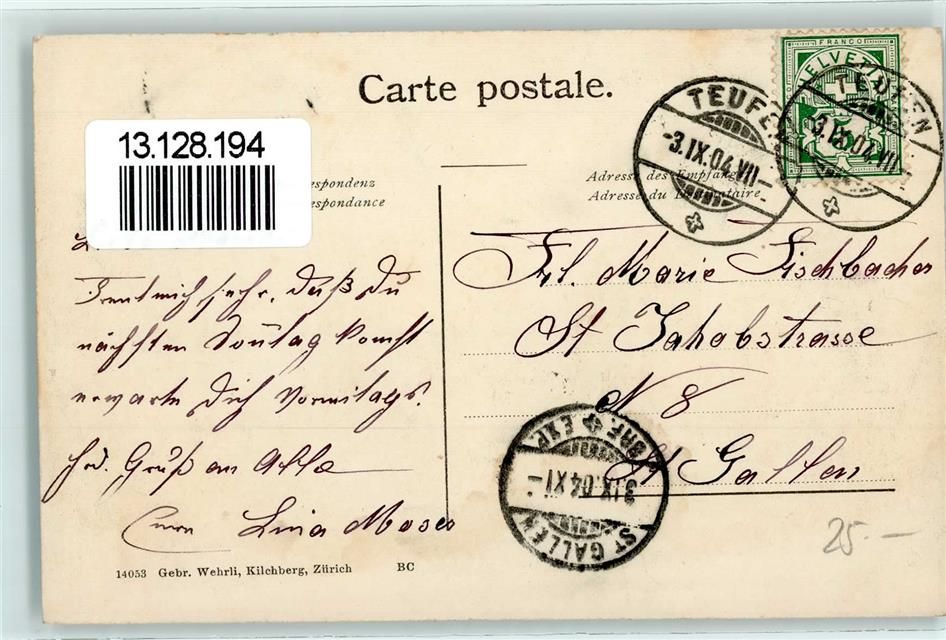 Carte postale.
FRANCO
HELVETIA
TEUFEN
-3.IX.04.VII-
TEUFEN
3.IX.04.VII
13.128.194
espondenz
espondance
Adresse des Empfäng
Adresse du
taire
L
Freut mich sehr, daß du
nächsten Sontag komst
erwarte dich Vormitags.
Hrz. Gruß an Alle
Lina Moser
Frl. Marie Fischbacher
St Jakobstrasse
N 8
St Gallen
BRF. EXP.
3.IX.04 XI-
ST GALLEN
25.-
14053 Gebr. Wehrli, Kilchberg, Zürich BC